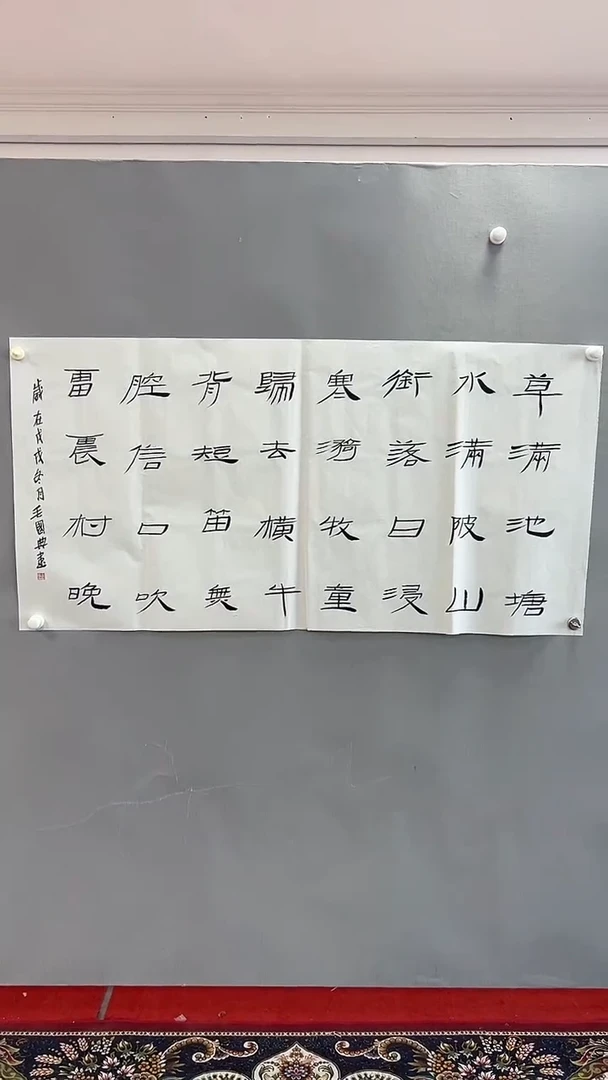 草滿池塘
水滿陂山
銜落日浸
寒漪牧童
歸去橫牛
背短笛無
腔信口吹
雷震村晚
歲在戊戌冬月毛國典書